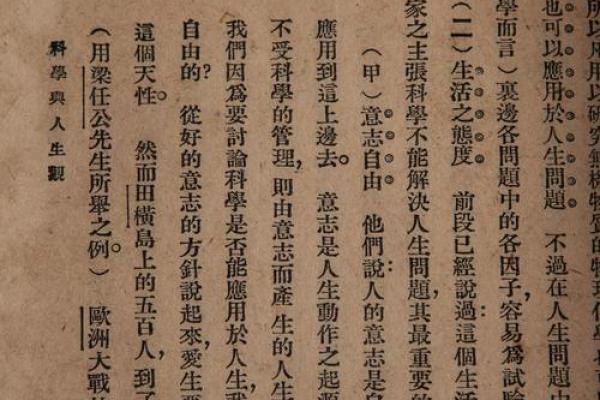 所以凡用以研究無機物質的物理化學
也可以應用於人生問題　不過在人生問題中
學而言）裏邊各問題中的各因子，容易爲試驗
（二）生活之態度　前段已經說過：這個生活
家之主張科學不能解決人生問題，其最重要的
（甲）意志自由　他們說：人的意志是自
應用到這上邊去。　意志是人生動作之起源
不受科學的管理，則由意志而產生的人生
我們因爲要討論科學是否能應用於人生，我
自由的？　從好的意志的方針說起來，愛生惡
這個天性。　然而田橫島上的五百人，到了
（用梁任公先生所舉之例。）　歐洲大戰
科學與人生觀